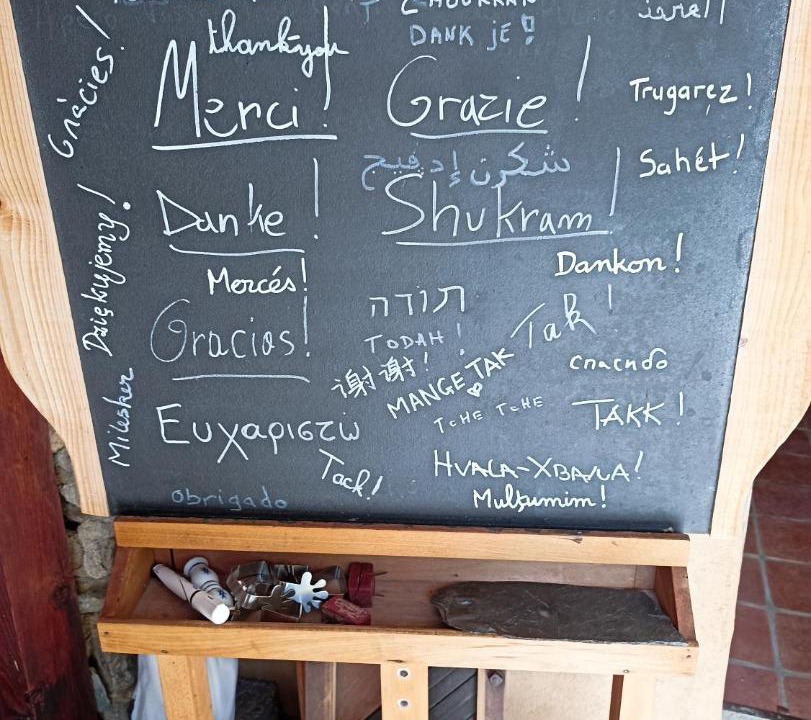 CHOUKRAN
DANK JE !
thankyou
Merci !
Grazie !
Trugarez !
Gràcies !
شكرن إد فيح
Sahét !
Danke !
Shukram !
Dankon !
Mercés !
Dziękujemy !
תודה
TODAH !
Tak !
Gracias !
谢谢 !
MANGE TAK
спасибо
TCHE TCHE
TAKK !
Milesker
Ευχαριστώ
Tack !
HVALA-ХВАЛА !
Mulțumim !
obrigado